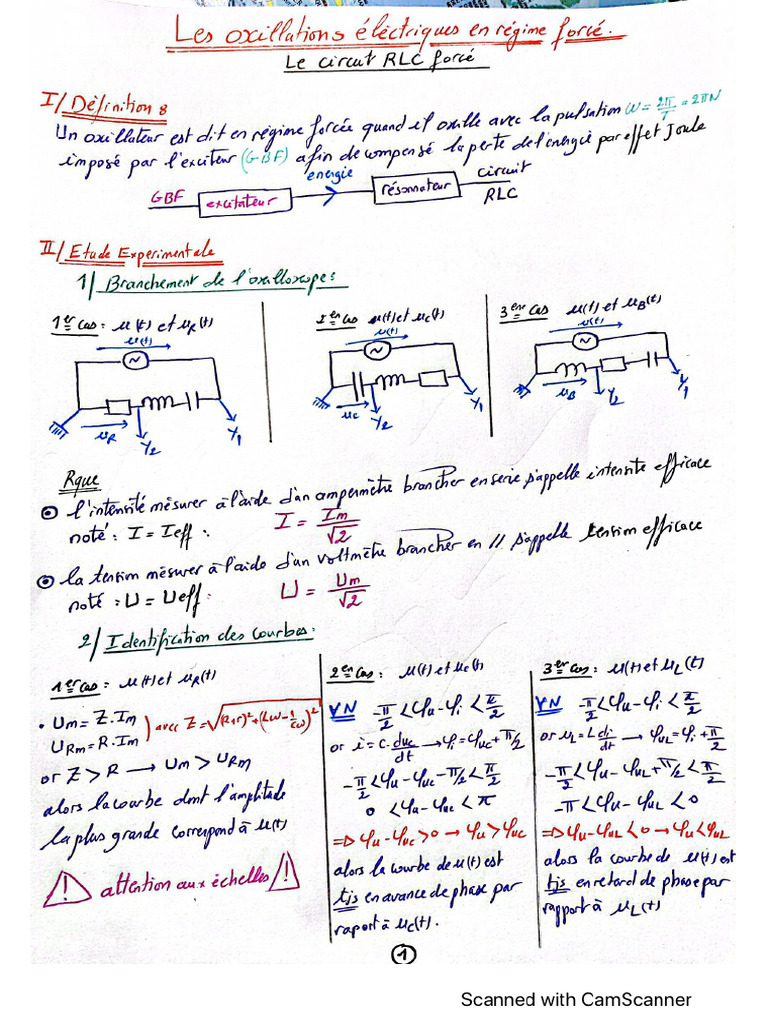 Les oxillations éléctriques en régime forcé.
Le circuit RLC forcé
I/ Définition 8
Un oxillateur est dit en régime forcée quand il oxille avec la pulsation ω = 2π/T = 2πN
imposé par l'exciteur (GBF) afin de compensé la perte de l'énergie par effet Joule
GBF excitateur énergie résonnateur circuit RLC
II/ Etude Experimentale
1/ Branchement de l'oxilloscope:
1er Cas : u(t) et uR(t)
u(t)
uR
Y2
Y1
2en Cas u(t) et uC(t)
u(t)
uC
Y2
Y1
3eme Cas u(t) et uB(t)
u(t)
uB
Y2
Y1
Rque
l'intensité mésurer à l'aide d'un ampermètre brancher en serie s'appelle intensite efficace
noté : I = Ieff : I = Im/√2
la tension mésurer à l'aide d'un voltmètre brancher en // s'appelle tension efficace
noté : U = Ueff : U = Um/√2
2/ Identification des courbes:
1er cas : u(t) et uR(t)
• Um = Z.Im
URm = R.Im ) avec Z = √(R+r)²+(Lω-1/cω)²
or Z > R → Um > URm
alors la courbe dont l'amplitude
la plus grande correspond à u(t)
! attention aux échelles !
2en cas : u(t) et uc(t)
∀N -π/2 < φu - φi < π/2
or i = c.duc/dt → φi = φuc + π/2
-π/2 < φu - φuc - π/2 < π/2
0 < φu - φuc < π
=> φu - φuc > 0 → φu > φuc
alors la courbe de u(t) est
tjs en avance de phase par
raport à uc(t).
3er cas : u(t) et uL(t)
∀N -π/2 < φu - φi < π/2
or uL = L di/dt → φuL = φi + π/2
-π/2 < φu - φuL + π/2 < π/2
-π < φu - φuL < 0
=> φu - φuL < 0 → φu < φuL
alors la courbe de u(t) est
tjs en retard de phase par
rapport à uL(t)
1
Scanned with CamScanner